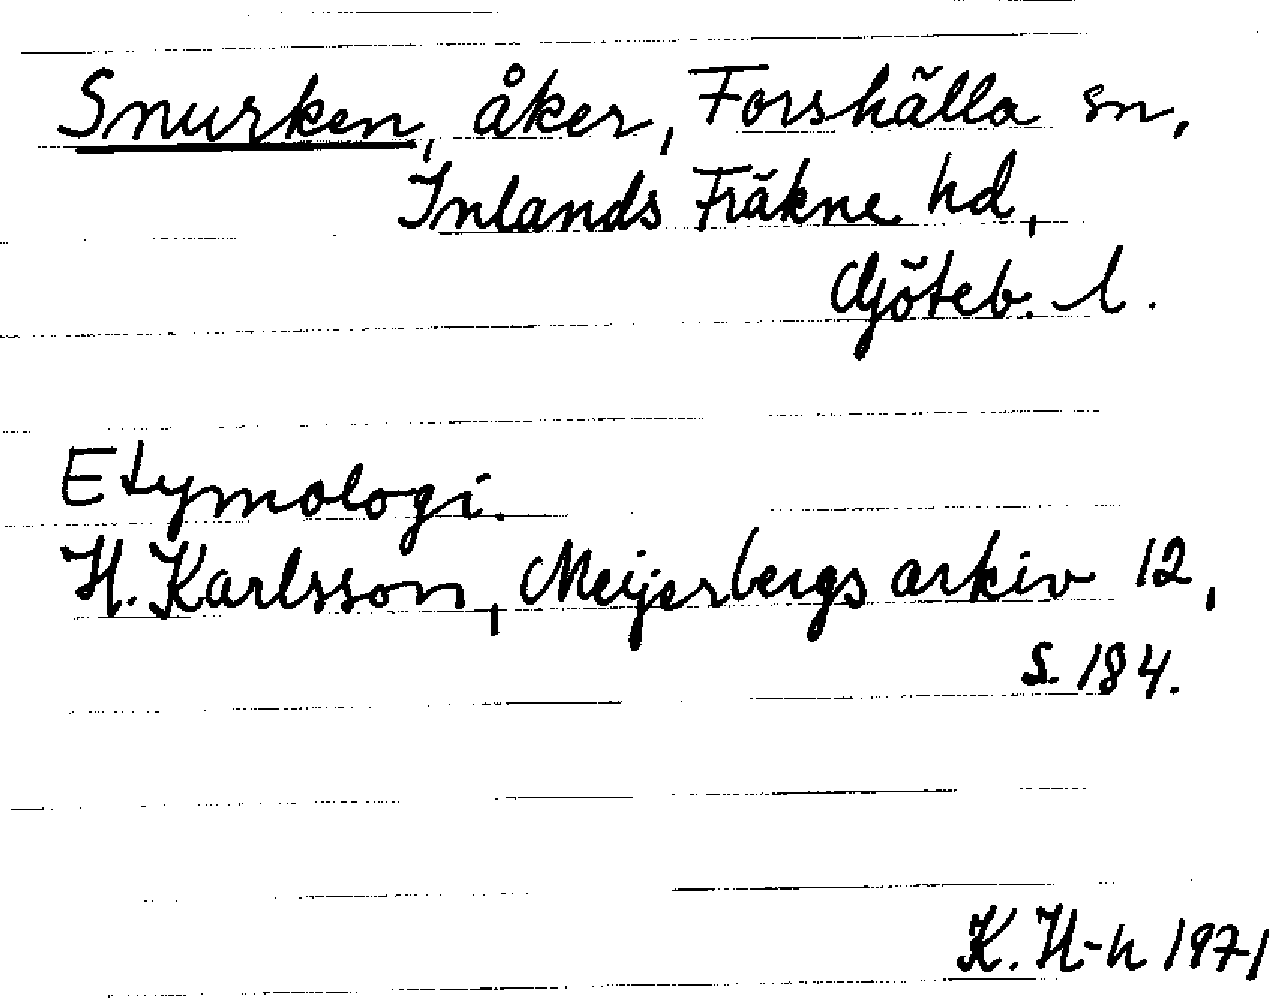 Snurken, åker, Forshälla sn,
Inlands Fräkne hd,
Göteb. l.
Etymologi.
H. Karlsson, Meijerbergs arkiv 12,
s. 184.
K. H-n 1971